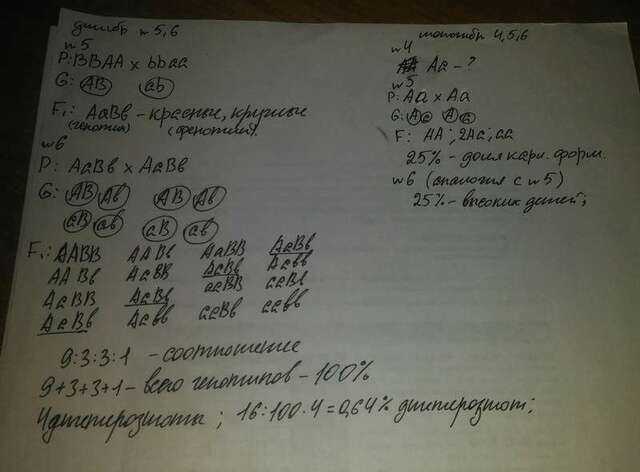 дигибр №5,6
№5
P: BBAA x bbaa
G: AB ab
F₁: AaBb - красные, круглые
(генотип) (фенотип).
№6
P: AaBb x AaBb
G: AB Ab AB Ab
aB ab aB ab
F₁: AABB AABb AaBB AaBb
AABb AaBB AaBb Aabb
AaBB AaBb aaBB aaBb
AaBb Aabb aaBb aabb
9:3:3:1 - соотношение
9+3+3+1 - всего генотипов - 100%
4 дигетерозиготы ; 16:100·4=0,64% дигетерозигот;
моногибр 4,5,6
№4
Aa - ?
№5
P: Aa x Aa
G: A a A a
F: AA ; 2Aa ; aa
25% - доля карл. форм.
№6 (аналогия с №5)
25% - высоких детей ;